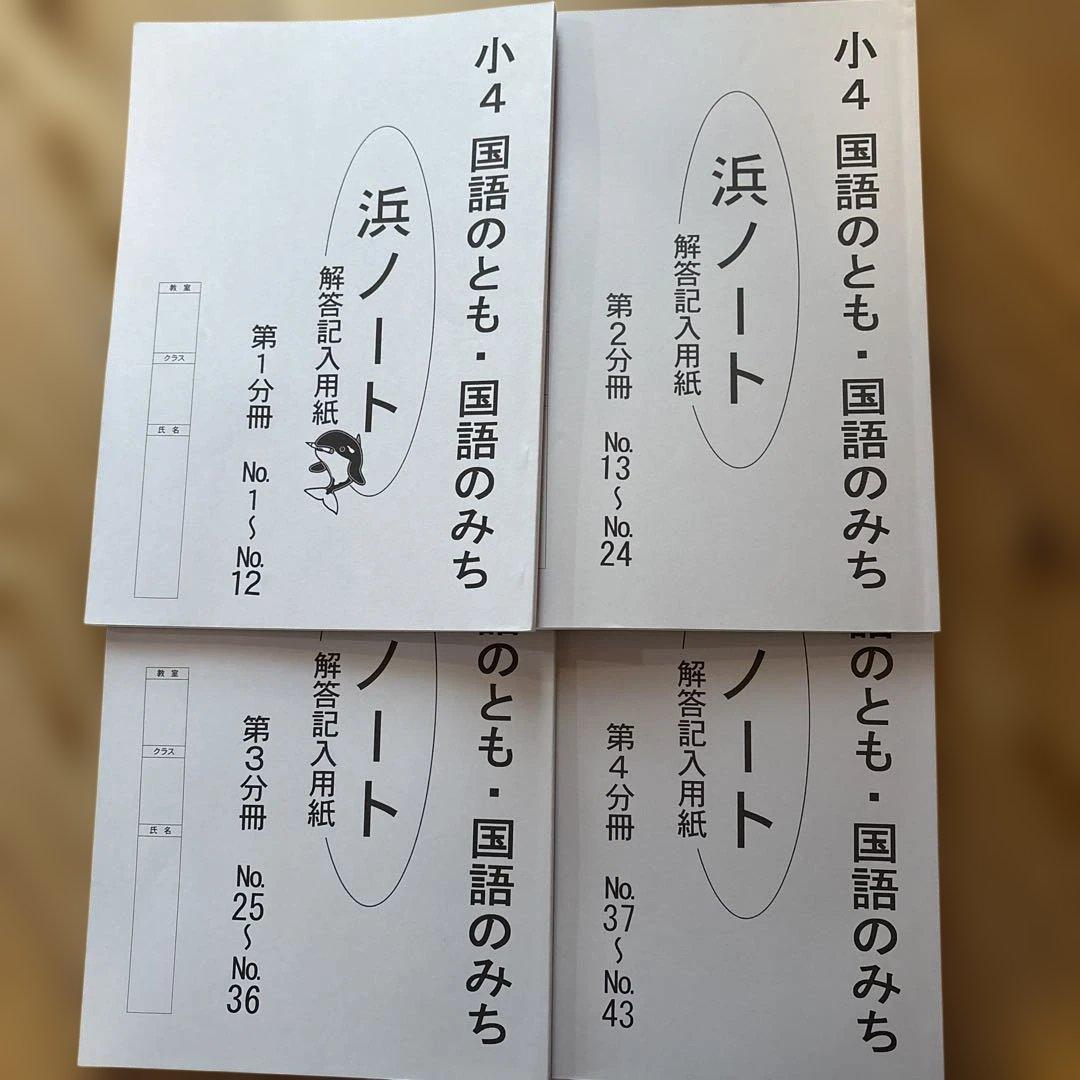 小4 国語のとも・国語のみち
浜ノート
解答記入用紙
第1分冊 No.1～No.12
教室
クラス
氏名
小4 国語のとも・国語のみち
浜ノート
解答記入用紙
第2分冊 No.13～No.24
語のとも・国語のみち
ノート
解答記入用紙
第3分冊 No.25～No.36
教室
クラス
氏名
語のとも・国語のみち
ノート
解答記入用紙
第4分冊 No.37～No.43